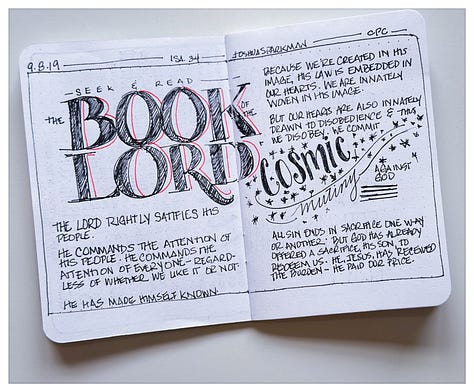 9.8.19
ISA 34
SEEK & READ
THE BOOK OF THE
LORD
THE LORD RIGHTLY SATISFIES HIS
PEOPLE.
HE COMMANDS THE ATTENTION OF
HIS PEOPLE. HE COMMANDS THE
ATTENTION OF EVERYONE - REGARD-
LESS OF WHETHER WE LIKE IT OR NOT.
HE HAS MADE HIMSELF KNOWN
JOSHUA SPARKMAN
CPC
BECAUSE WE'RE CREATED IN HIS
IMAGE, HIS LAW IS EMBEDDED IN
OUR HEARTS. WE ARE INNATELY
WOVEN IN HIS IMAGE.
BUT OUR HEARTS ARE ALSO INNATELY
DRAWN TO DISOBEDIENCE & THUS
WE DISOBEY. WE COMMIT
COSMIC
mutiny
AGAINST
GOD
ALL SIN ENDS IN SACRIFICE ONE WAY
OR ANOTHER. BUT GOD HAS ALREADY
OFFERED A SACRIFICE, HIS SON, TO
REDEEM US. HE, JESUS, HAS RECEIVED
THE BURDEN - HE PAID OUR PRICE.